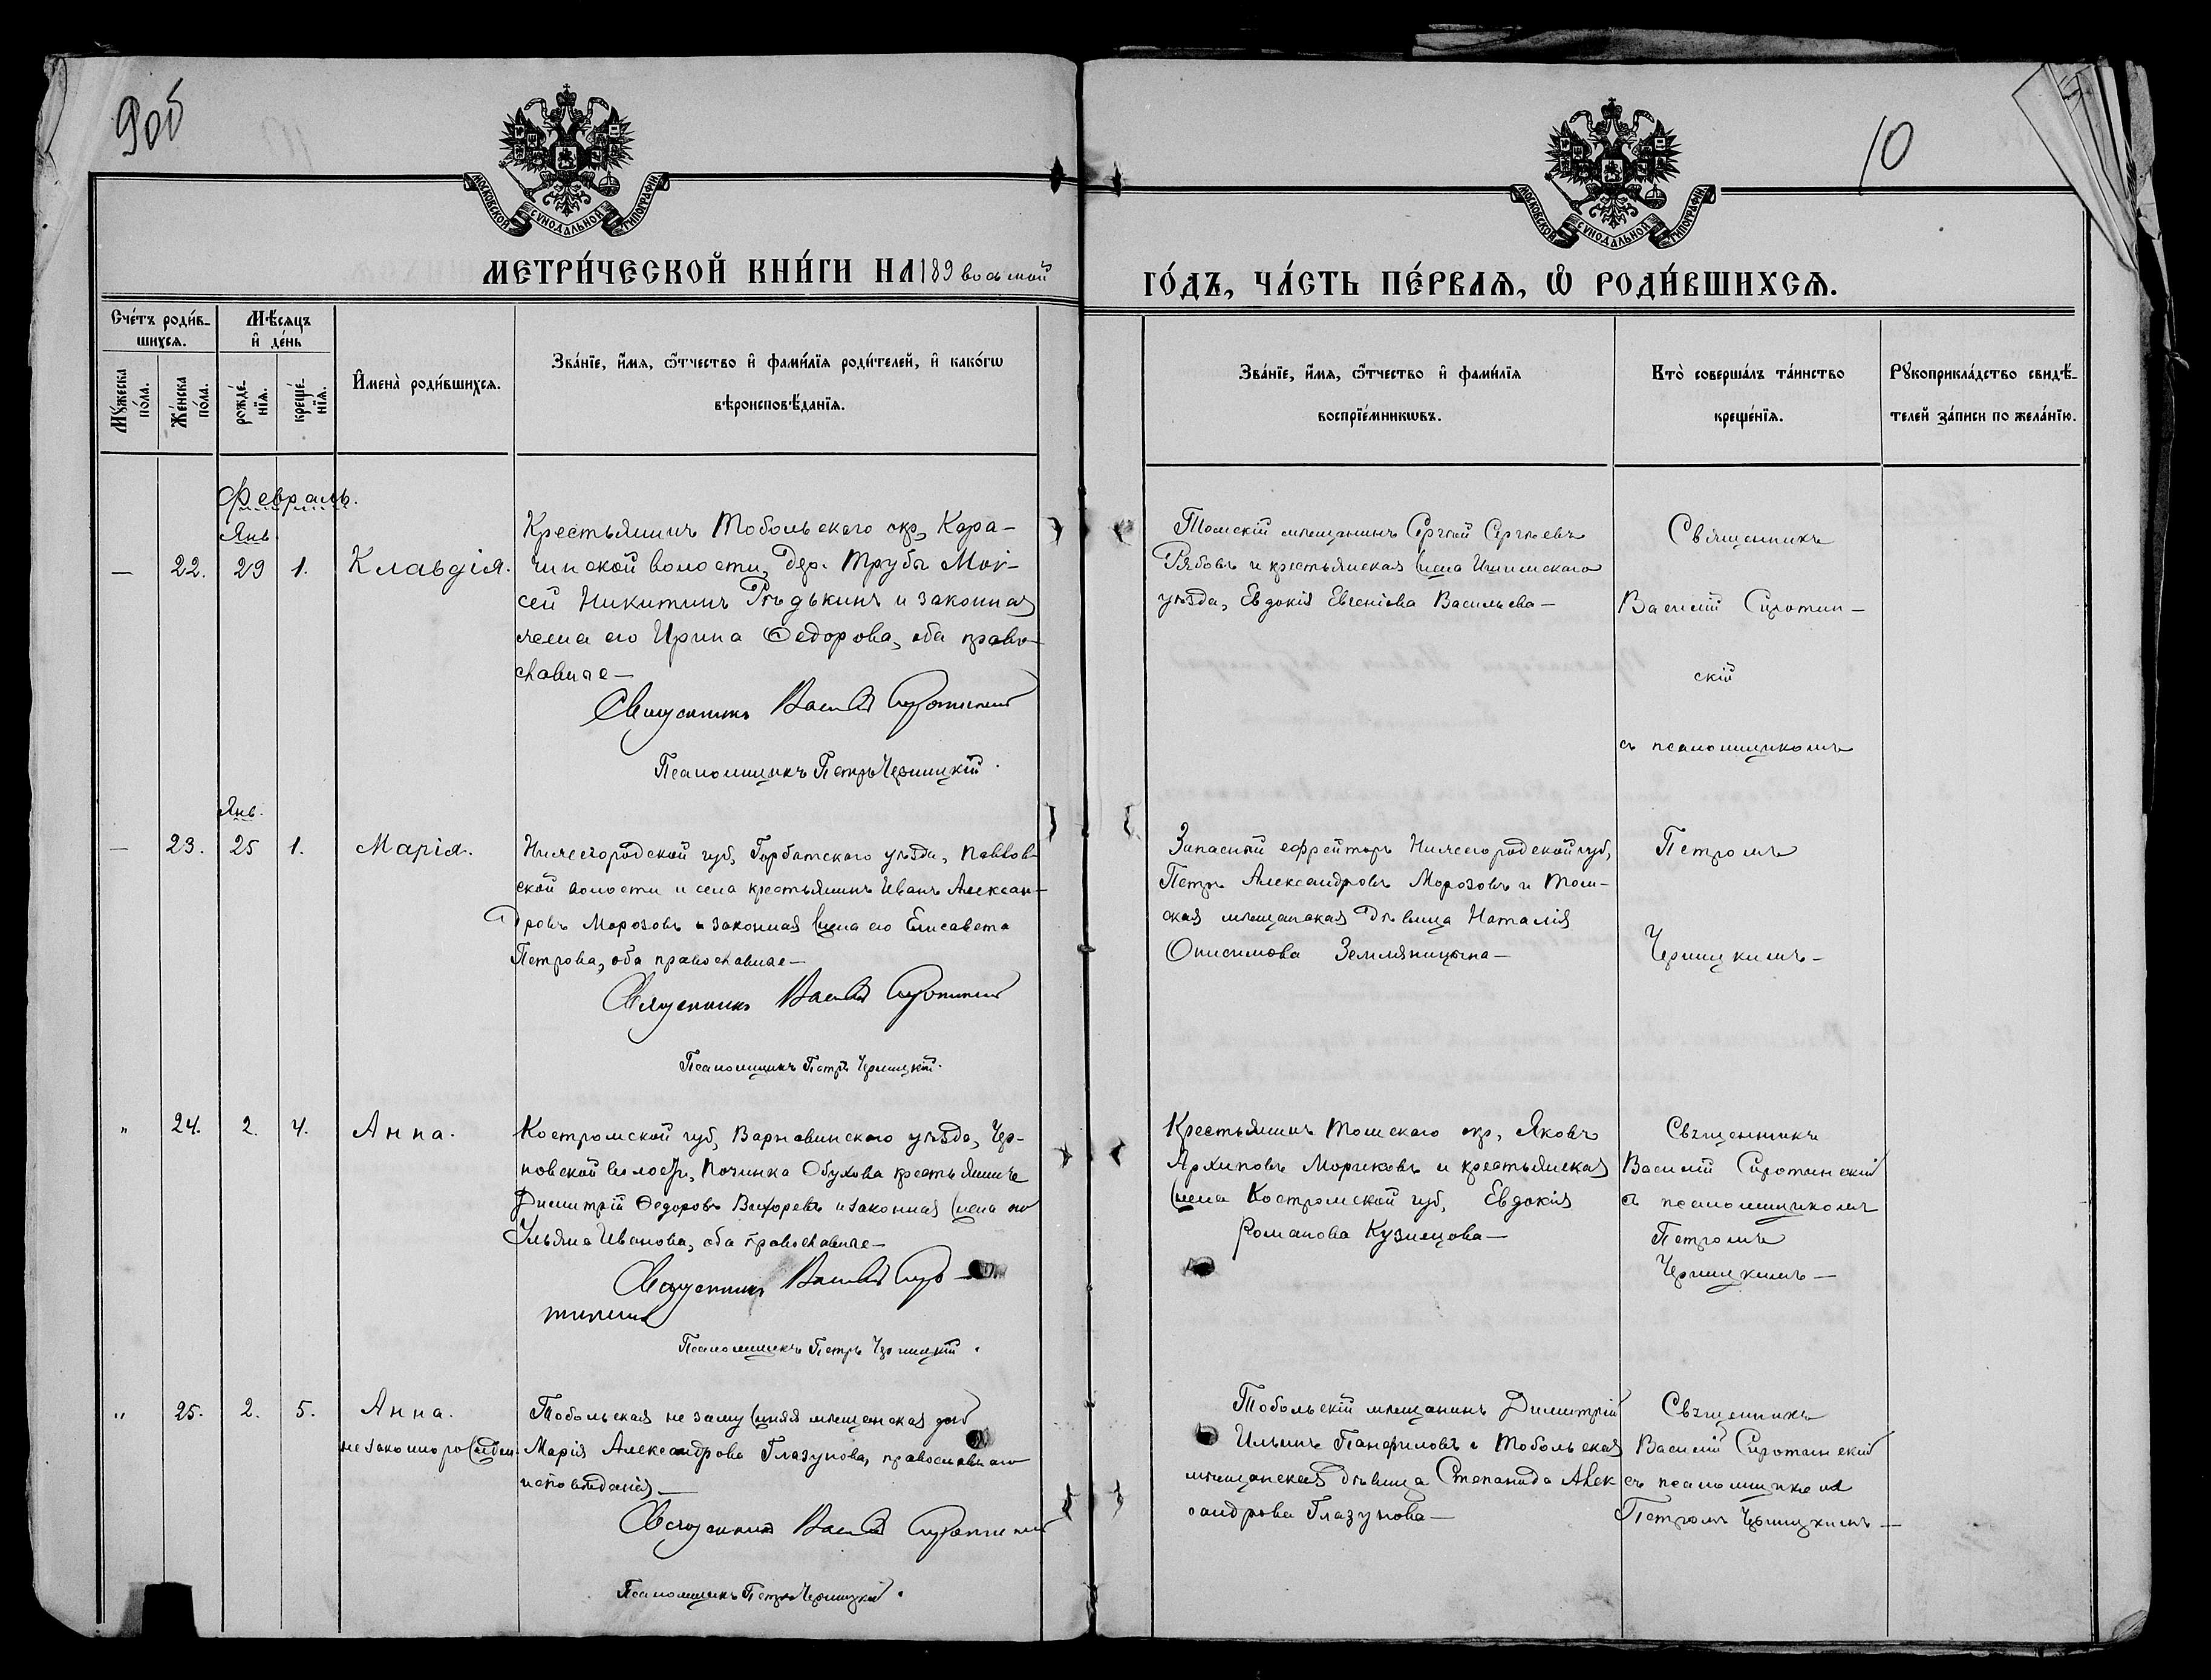 9об
10
МОСКОВСКОЙ СѴНОДАЛЬНОЙ ТИПОГРАФІИ
МОСКОВСКОЙ СѴНОДАЛЬНОЙ ТИПОГРАФІИ
МЕТРИ́ЧЕСКОЙ КНИ́ГИ НА 189 восьмой
ГО́ДЪ, ЧА́СТЬ ПЕ́РВАѦ, Ѡ҆ РОДИ́ВШИХСѦ.
Сче́тъ роди́в-
шихсѧ.
Мѣ́сѧцъ
и҆ де́нь
Мꙋ́жеска
по́ла.
Же́нска
по́ла.
рожде́-
нїѧ.
креще́-
нїѧ.
И҆мена̀ роди́вшихсѧ.
Зва́нїе, и҆́мѧ, ѻ҆́тчество и҆ фами́лїѧ роди́телей, и҆ како́гѡ
вѣроисповѣ́данїѧ.
Зва́нїе, и҆́мѧ, ѻ҆́тчество и҆ фами́лїѧ
воспрїе́мникѡвъ.
Кто̀ соверша́лъ та́инство
креще́нїѧ.
Рꙋкоприкла́дство свидѣ́-
телей за́писи по жела́нїю.
Февраль.
Янв
— 22. 29 1. Клавдія.
Крестьянинъ Тобольскаго окр, Кара-
чинской волости, дер. Трубы Мои-
сей Никитинъ Рѣдькинъ и законная
жена его Ирина Ѳедорова, оба право-
славные —
Священникъ Василій Сиротинскій
Псаломщикъ Петръ Черницкій.
Томскій мѣщанинъ Сергѣй Сергѣевъ
Рябовъ и крестьянская жена Ишимскаго
уѣзда, Евдокія Евгеніева Васильева —
Священникъ
Василій Сиротин-
скій
съ псаломщикомъ
Янв.
— 23. 25 1. Марія.
Нижегородской губ, Горбатскаго уѣзда, Павлов-
ской волости и села крестьянинъ Иванъ Алексан-
дровъ Морозовъ и законная жена его Елисавета
Петрова, оба православные —
Священникъ Василій Сиротинскій
Псаломщикъ Петръ Черницкій.
Запасный ефрейторъ Нижегородской губ,
Петръ Александровъ Морозовъ и Том-
ская мѣщанская дѣвица Наталія
Онисимова Земляницына —
Петромъ
Черницкимъ —
" 24. 2. 4. Анна.
Костромской губ, Варнавинскаго уѣзда, Чер-
новской волости, починка Обухова крестьянинъ
Димитрій Ѳедоровъ Вихоревъ и законная жена его
Ульяна Иванова, оба православные —
Священникъ Василій Сиро-
тинскій
Псаломщикъ Петръ Черницкій.
Крестьянинъ Томскаго окр, Яковъ
Архиповъ Мориковъ и крестьянская
жена Костромской губ, Евдокія
Романова Кузнецова —
Священникъ
Василій Сиротинскій
съ псаломщикомъ
Петромъ
Черницкимъ —
" 25. 2. 5. Анна.
незаконнорожден.
Тобольская незамужняя мѣщанская дочь
Марія Александрова Глазунова, православнаго
исповѣданія —
Священникъ Василій Сиротинскій
Псаломщикъ Петръ Черницкій.
Тобольскій мѣщанинъ Димитрій
Ильинъ Панфиловъ и Тобольская
мѣщанская дѣвица Степанида Алек-
сандрова Глазунова —
Священникъ
Василій Сиротинскій
съ псаломщикомъ
Петромъ Черницкимъ —